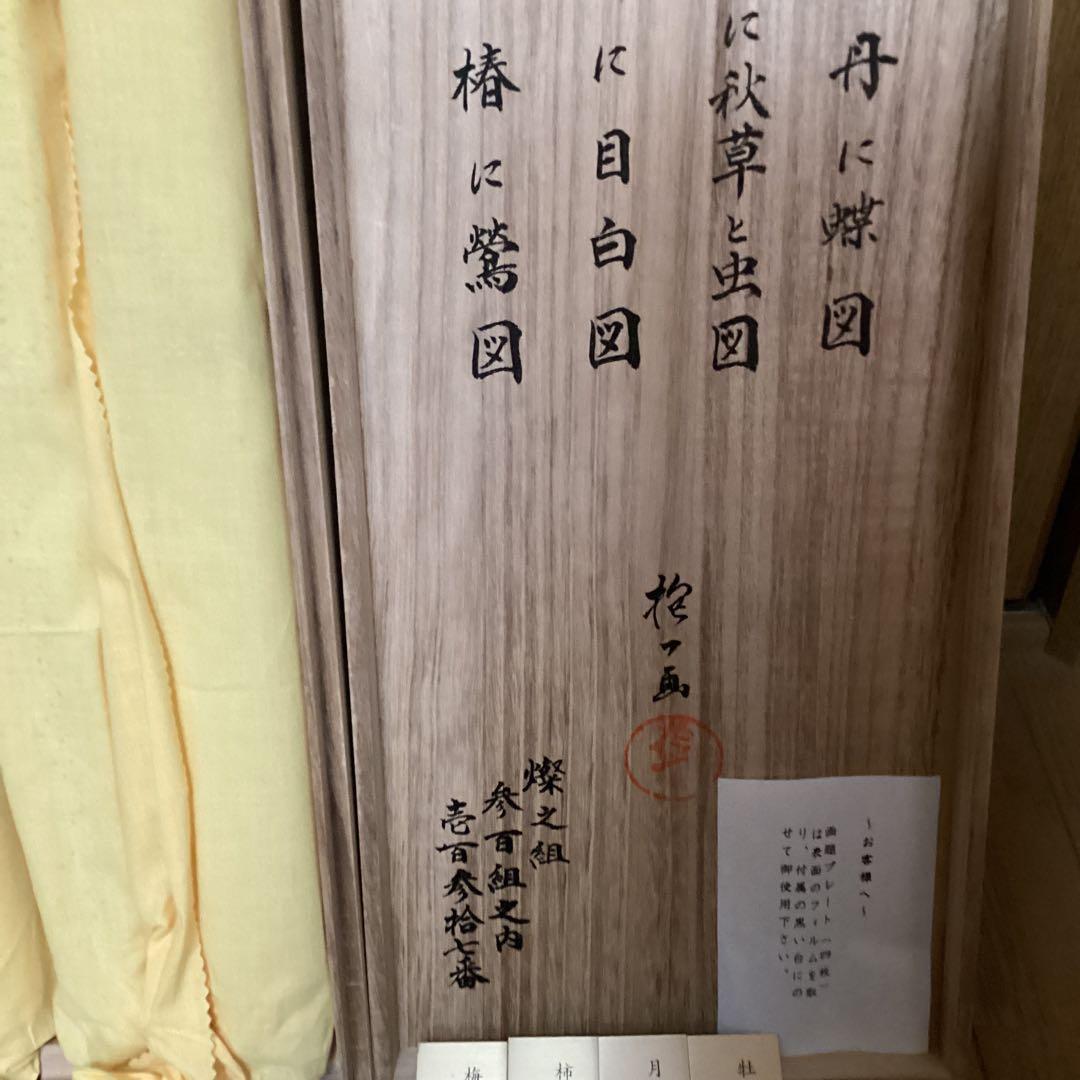 丹に蝶図
に秋草と虫図
に目白図
椿に鶯図
抱一画
燦之組
参百組之内
壱百参拾七番
～お客様へ～
画題プレート(四枚)
は表面のフィルムを取
り、付属の黒い台にの
せて御使用下さい。
牡
月
柿
梅